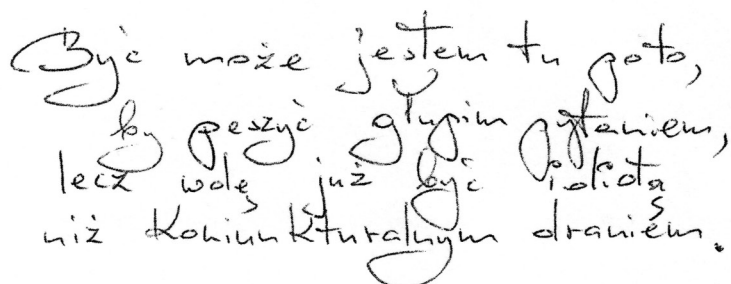 Być może jestem tu poto,
by peszyć głupim pytaniem,
lecz wolę już być idiotą
niż koniunkturalnym draniem.